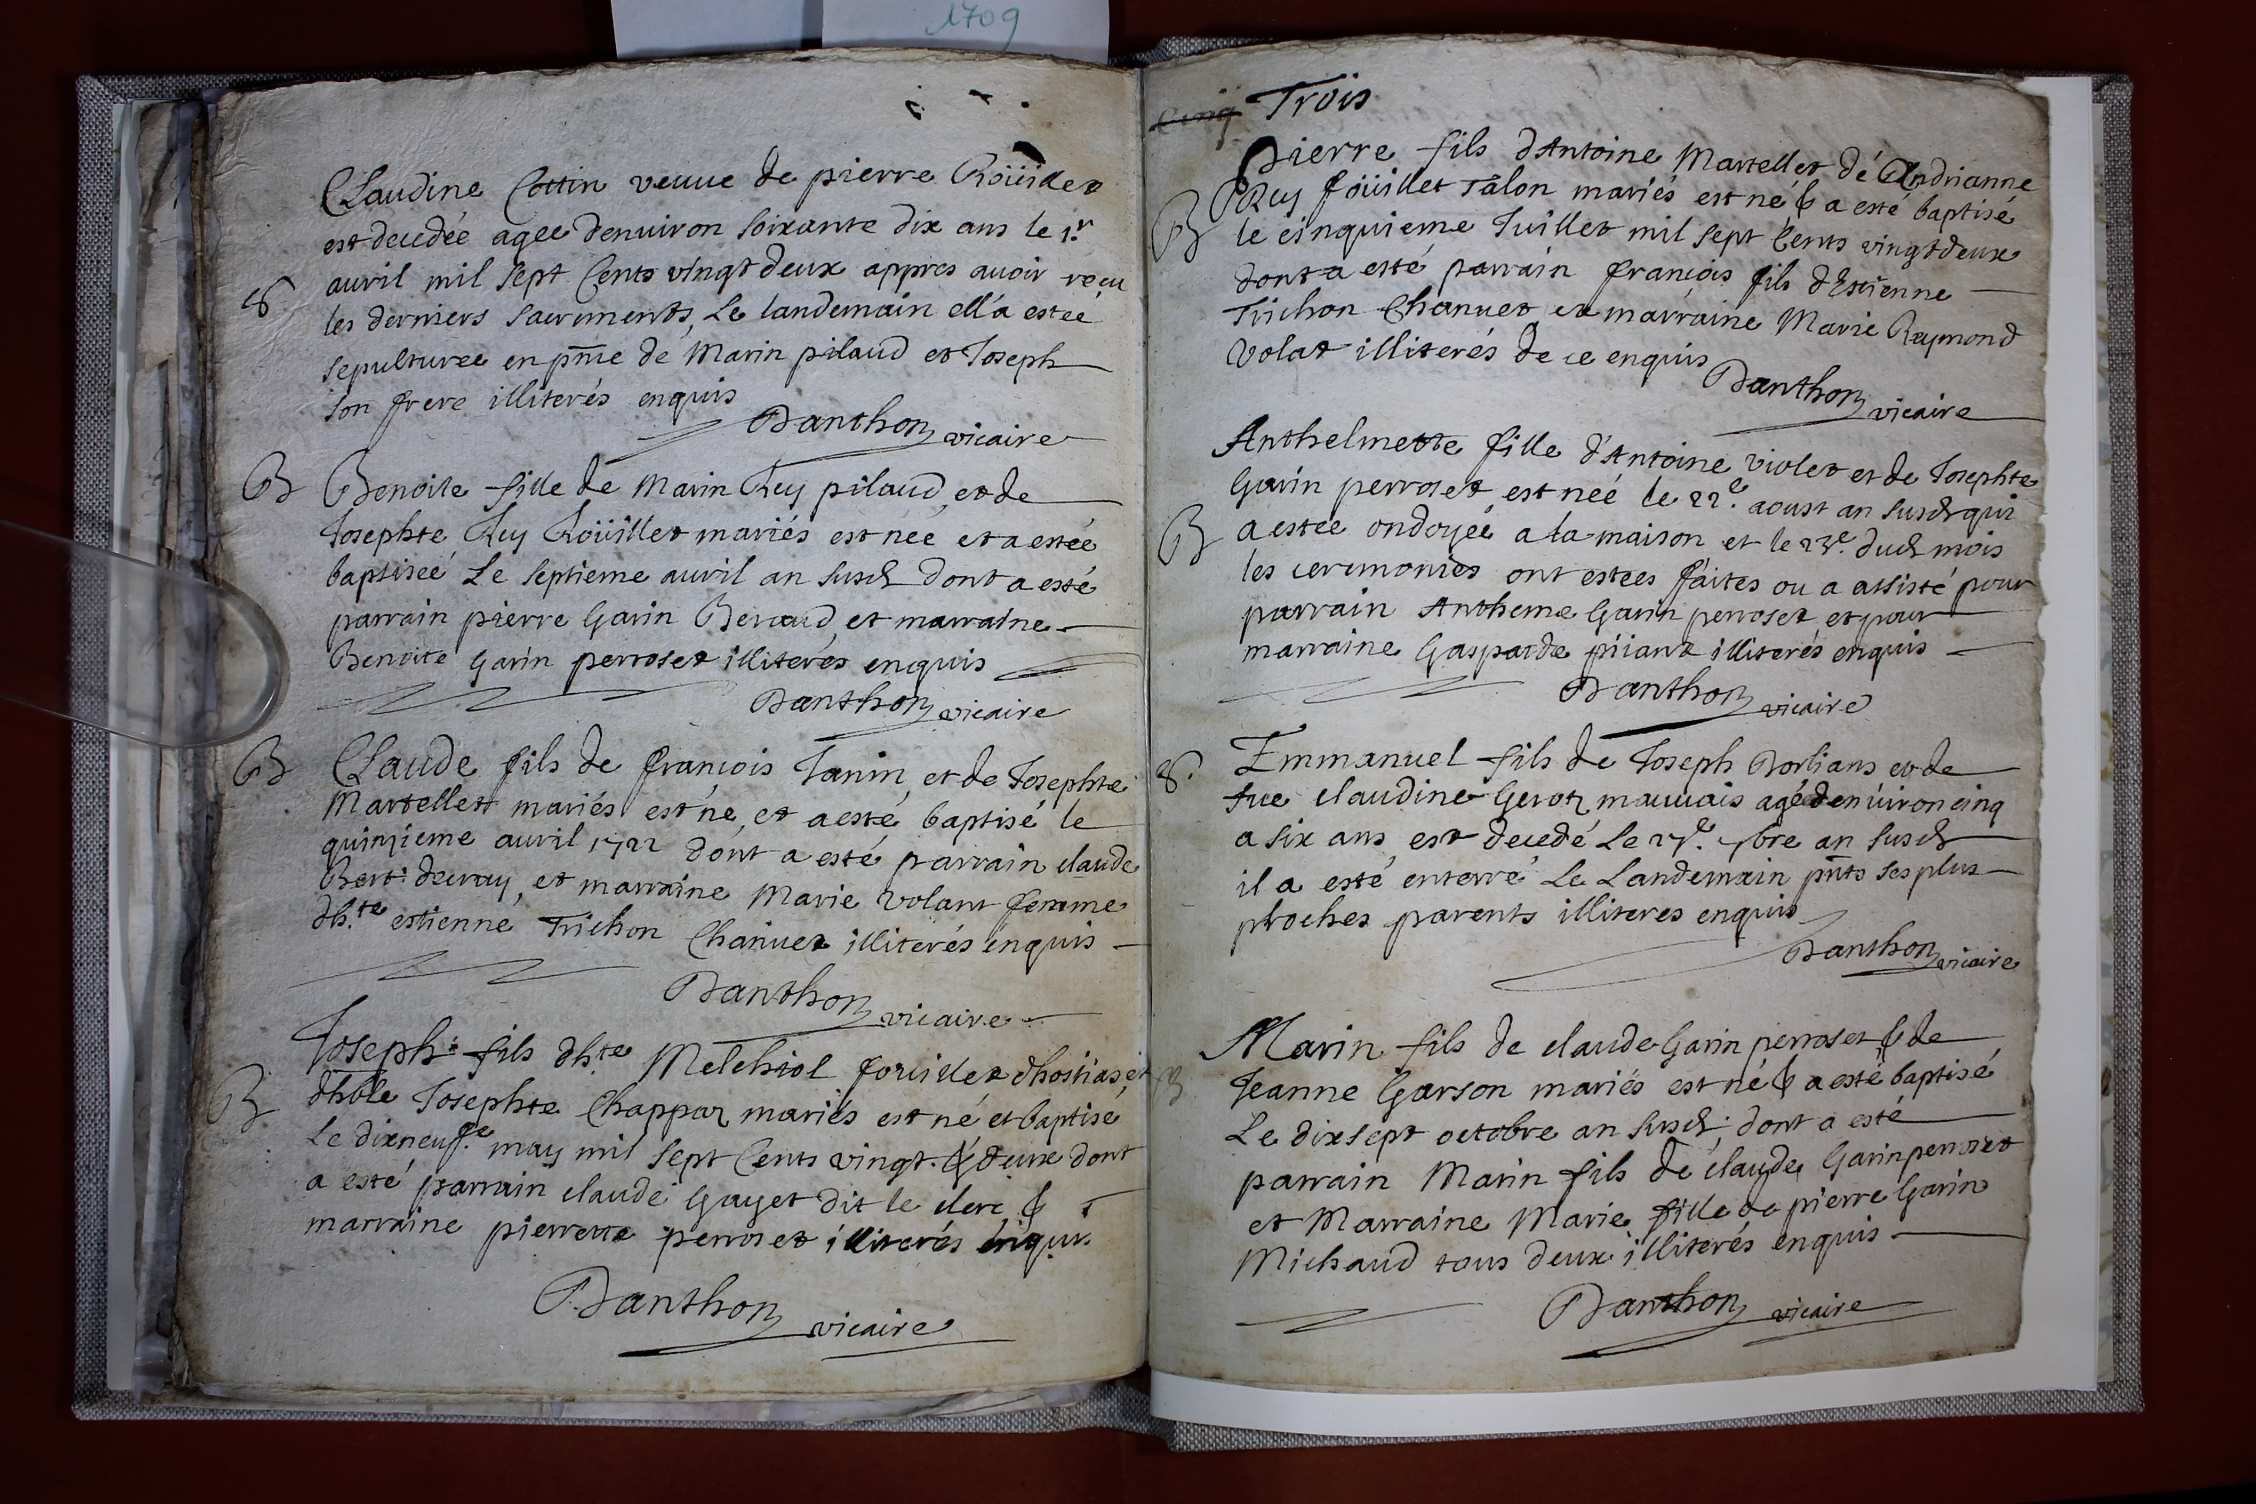 1709
Claudine Cottin veuue de pierre Roüillet
est decedée agee denuiron soixante dix ans le 1.r
auril mil sept Cents vingt deux appres auoir reçu
8
les derniers sacrements, Le landemain ell'a esteé
sepulturee en pñte de Marin pilaud et Joseph
son frere illiterés enquis
Danthon vicaire
B Benoite fille de Marin Rey pilaud, et de
Josephte Rey Roüillet mariés est née et a estée
baptiseé Le septieme auril an susd dont a esté
parrain pierre Garin Beraud et marraine
Benoite Garin perroset illiterés enquis
Danthon vicaire
B Claude fils de francois Janin, et de Josephte
Martellet mariés est né, et a esté baptisé le
quinzieme auril 1722 dont a esté parrain claude
Bert: et marraine Marie Volant femme
dh.te estienne Trichon Chanuet illiterés enquis
Danthon vicaire
Joseph fils dh.te Melchiol foüillet dhostias, et
B dhble Josephte Chappaz mariés est né et baptisé
Le dixneuf.e may mil sept Cents vingt & deux dont
a esté parrain claude Gayet dit le clerc &
marraine pierrette perroset illiterés enquis
Danthon vicaire
Cinq Trois
Pierre fils dAntoine Martellet dé Andrianne
Rey foüillet Talon mariés est né & a esté baptisé
B le cinquieme Juillet mil sept Cents vingt deux
dont a esté parrain francois fils dEstienne
Trichon Chanuet et marraine Marie Raymond
Volat illiterés de ce enquis
Danthon vicaire
Anthelmette fille d'Antoine Violet et de Josephte
Garin perroset est néé le 22.e aoust an susd qui
B a estée ondoyée a la maison et le 23.e dud mois
les ceremonies ont estees faites ou a assisté pour
parrain Antheme Garin perroset et pour
marraine Gasparde illiterés enquis
Danthon vicaire
8. Emmanuel fils de Joseph Borlians et de
fue claudine Geroz mauuais agé denuiron cinq
a six ans est decedé Le 27.e 7bre an susd
il a esté enterré Le Landemain pñts ses plus
proches parents illiteres enquis
Danthon vicaire
Marin fils de claude Garin perroset & de
B Jeanne Garson mariés est né & a esté baptisé
Le dix sept octobre an susd: dont a esté
parrain Marin fils de claude Garin perroset
et Marraine Marie fille de pierre Garin
Michaud tous deux illiterés enquis
Danthon vicaire